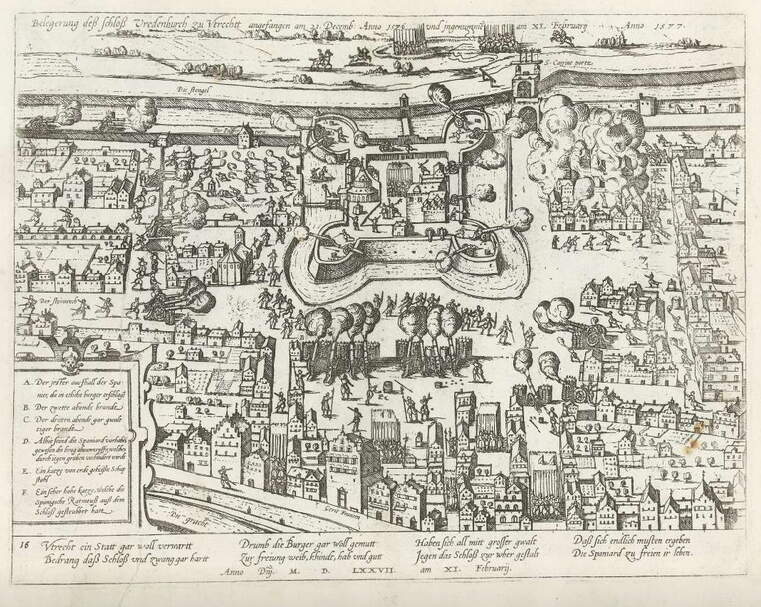 Belegerung deß schloß Vredenburch zu Vtrecht angefangen am 21. Decemb. Anno 1576 vnd ingenummen am XI. Februarij Anno 1577.
S. Catrine portz
Die stengel
Der steinwech
A. Der erster ausfhall der Spa
nier, da in etliche burger erschlagen
B. Der zweite abende brande
C. Der dritten abende gar gwalt
tiger brandt
D.
E. Ein katze von erde
F. Ein seher hohe katze, welche die
Spanische auß dem
Schloß
Die gracht
16 Vtrecht ein Statt gar woll verwartt
Bedrang daß Schloß vnd zwang gar hartt
Drumb die Burger gar woll gemutt
Zur freiung weib, khinde, hab vnd gutt
Haben sich all mitt grosser gwalt
Jegen das Schloß zur wher gestalt
Daß sich endlich musten ergeben
Die Spaniard zu freien ir leben.
Anno Dnj. M. D. LXXVII am XI. Februarij.